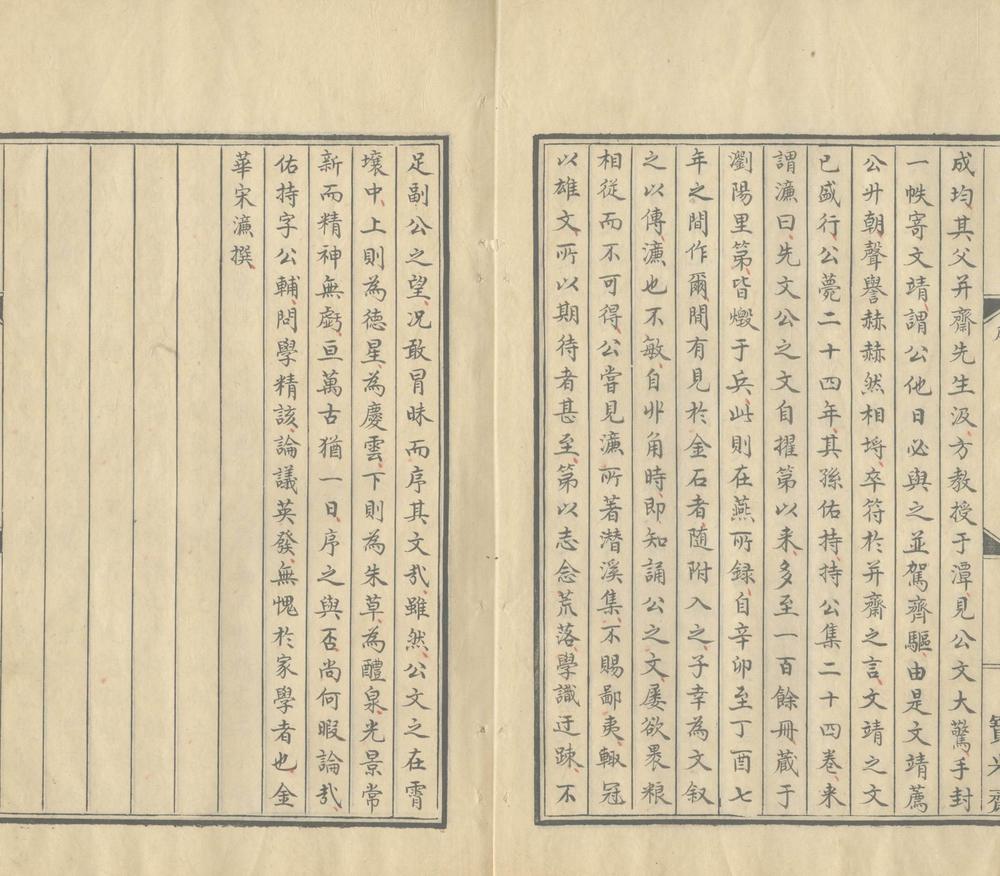 成均其父井齋先生汲方教授于潭見公文大驚手封
一帙寄文靖謂公他日必與之並駕齊驅由是文靖薦
公升朝聲譽赫赫然相埒卒符於井齋之言文靖之文
已盛行公薨二十四年其孫佑持持公集二十四卷来
謂濂曰先文公之文自擢第以来多至一百餘冊藏于
瀏陽里第皆燬于兵此則在燕所録自辛卯至丁酉七
年之間作爾間有見於金石者随附入之子幸為文叙
之以傳濂也不敏自丱角時即知誦公之文屡欲褁粮
相從而不可得公嘗見濂所著潜溪集不賜鄙夷輙冠
以雄文所以期待者甚至第以志念荒落學識迂踈不
足副公之望况敢冒昧而序其文㢤雖然公文之在霄
壤中上則為德星為慶雲下則為朱草為醴泉光景常
新而精神無虧亘萬古猶一日序之與否尚何暇論㢤
佑持字公輔問學精該論議英發無愧於家學者也金
華宋濂撰